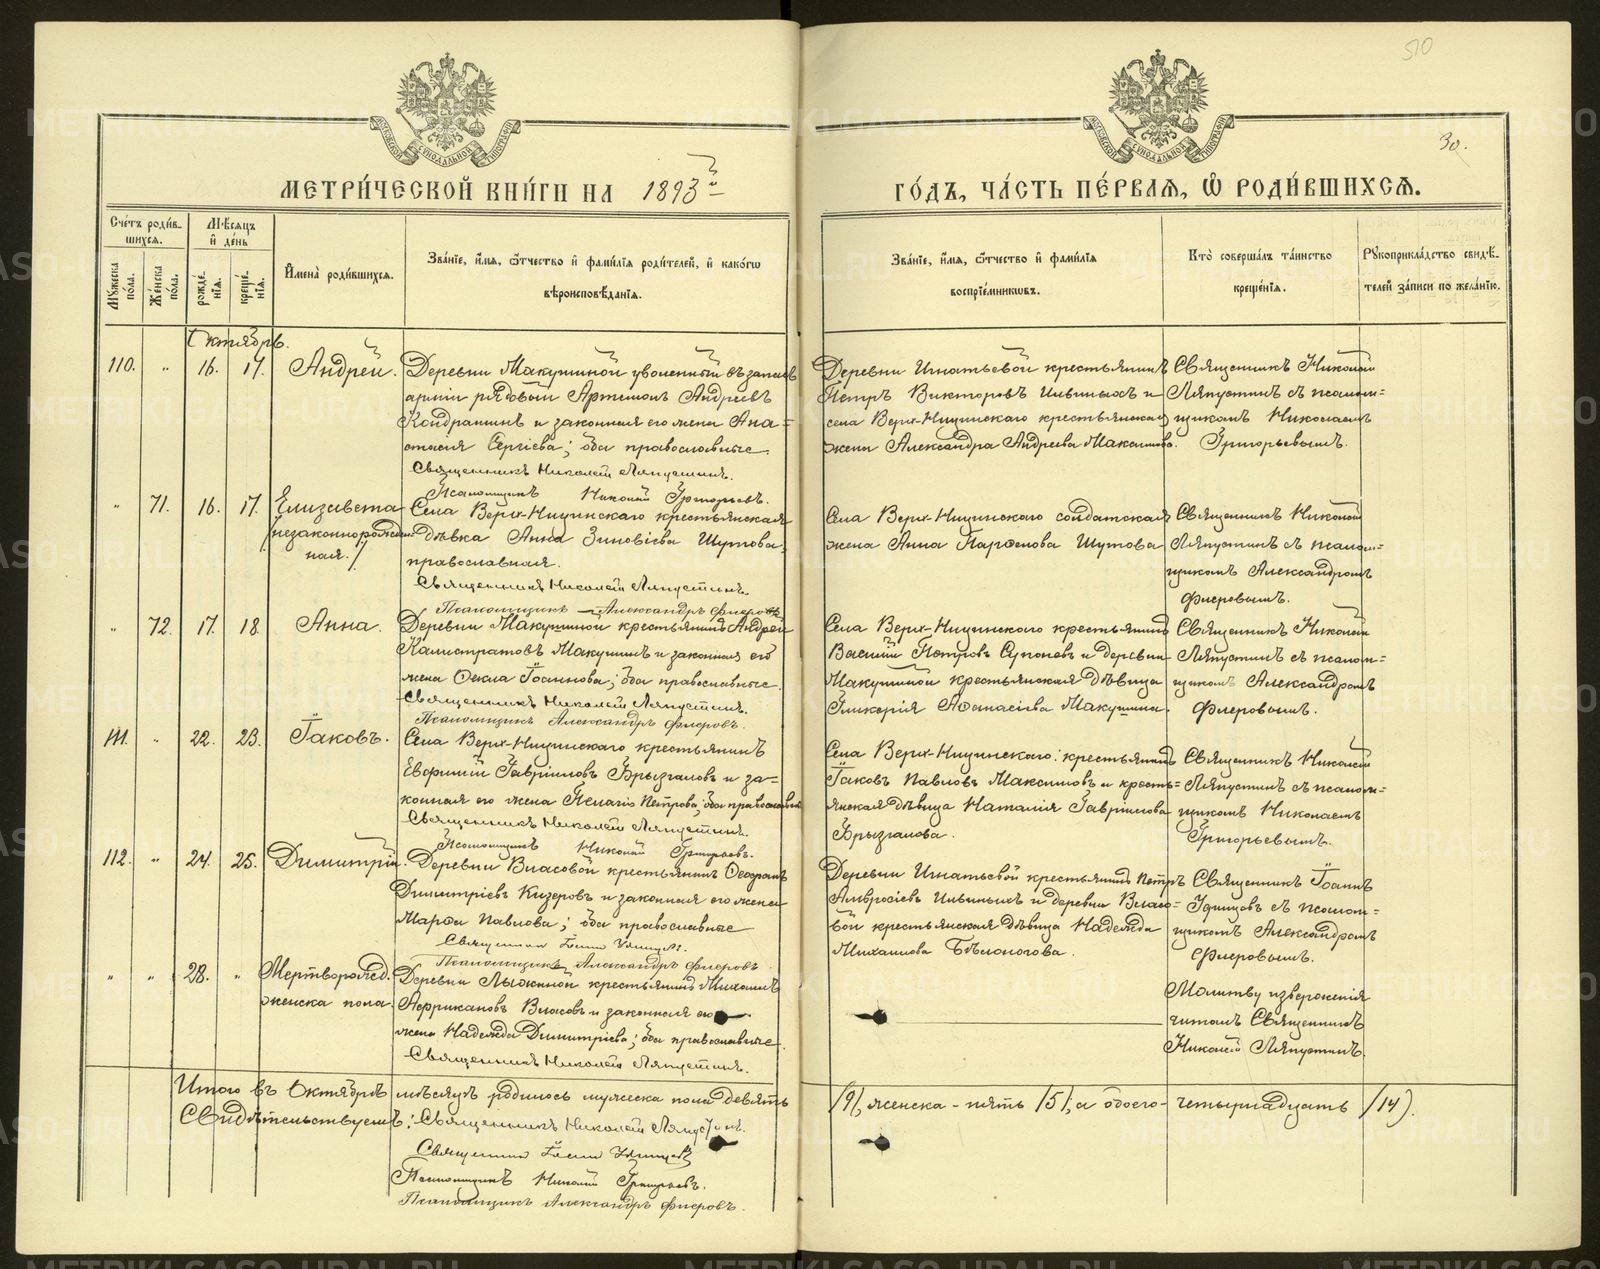 510
30.
МЕТРИ́ЧЕСКОЙ КНИ́ГИ НА 1893й
ГО́ДЪ, ЧА́СТЬ ПЕ́РВАѦ, Ѽ РОДИ́ВШИХСѦ.
Сче́тъ роди́в-
шихсѧ.
Мѣ́сѧцъ
и҆ де́нь
Мꙋ́жеска по́ла.
Же́нска по́ла.
рожде́-
нїѧ.
креще́-
нїѧ.
И҆мена̀ роди́вшихсѧ.
Зва́нїе, и҆́мѧ, ѻ҆́тчество и҆ фами́лїѧ роди́телей, и҆ како́гѡ
вѣроисповѣ́данїѧ.
Зва́нїе, и҆́мѧ, ѻ҆́тчество и҆ фами́лїѧ
воспрїе́мникѡвъ.
Кто̀ соверша́лъ та́инство
креще́нїѧ.
Рꙋкоприкла́дство свидѣ́-
телей за́писи по жела́нїю.
Октябрь.
110. „ 16. 17. Андрей.
Деревни Макушиной уволенный въ запасъ
арміи рядовой Артемонъ Андреевъ
Кондрашинъ и законная его жена Ана=
стасія Сергіева; оба православные.
Священникъ Николай Ляпустинъ.
Псаломщикъ Николай Григорьевъ.
Деревни Игнатьевой крестьянинъ
Петръ Викторовъ Ильиныхъ и
села Верх-Ницинскаго крестьянская
жена Александра Андреева Максимова.
Священникъ Николай
Ляпустинъ съ псалом-
щикомъ Николаемъ
Григорьевымъ.
„ 71. 16. 17. Елизавета
/незаконнорожден
ная./
Села Верх-Ницинскаго крестьянская
дѣвка Анна Зиновіева Шутова,
православная.
Священникъ Николай Ляпустинъ.
Псаломщикъ Александръ Флеровъ
Села Верх-Ницинскаго солдатская
жена Анна Парѳенова Шутова
Священникъ Николай
Ляпустинъ съ псалом=
щикомъ Александромъ
Флеровымъ.
„ 72. 17. 18. Анна.
Деревни Макушиной крестьянинъ Андрей
Калистратовъ Макушинъ и законная его
жена Ѳекла Іоаннова; оба православные.
Священникъ Николай Ляпустинъ.
Псаломщикъ Александръ Флеровъ.
Села Верх-Ницинскаго крестьянинъ
Василій Петровъ Супоневъ и деревни
Макушиной крестьянская дѣвица
Гликерія Аѳанасіева Макушина.
Священникъ Николай
Ляпустинъ съ псалом=
щикомъ Александромъ
Флеровымъ.
111. „ 22. 23. Іаковъ.
Села Верх-Ницинскаго крестьянинъ
Евфимій Гавріиловъ Брызгаловъ и за-
конная его жена Пелагія Петрова; оба православные
Священникъ Николай Ляпустинъ.
Псаломщикъ Николай Григорьевъ.
Села Верх-Ницинскаго: крестьянинъ
Іаковъ Павловъ Максимовъ и кресть=
янская дѣвица Наталія Гавріилова
Брызгалова.
Священникъ Николай
Ляпустинъ съ псалом-
щикомъ Николаемъ
Григорьевымъ.
112. „ 24. 25. Димитрій.
Деревни Власовой крестьянинъ Ѳеофанъ
Димитріевъ Кизеровъ и законная его жена
Марѳа Павлова; оба православные
Священникъ Іоаннъ Удинцевъ.
Псаломщикъ Александръ Флеровъ.
Деревни Игнатьевой крестьянинъ Петръ
Амвросіевъ Ильиныхъ и деревни Власо=
вой крестьянская дѣвица Надежда
Михаилова Бѣлоногова.
Священникъ Іоаннъ
Удинцовъ съ псалом=
щикомъ Александромъ
Флеровымъ.
„ „ 28. „ Мертворожд.
женска пола.
Деревни Лыжиной крестьянинъ Михаилъ
Африкановъ Власовъ и законная его
жена Надежда Димитріева; оба православные.
Священникъ Николай Ляпустинъ.
Молитву изверженія
читалъ Священникъ
Николай Ляпустинъ.
Итого въ Октябрѣ мѣсяцѣ родилось мужеска пола девять /9/, женска - пять /5/, а обоего - четырнадцать /14/.
Свидѣтельствуемъ: Священникъ Николай Ляпустинъ.
Священникъ Іоаннъ Удинцевъ
Псаломщикъ Николай Григорьевъ.
Псаломщикъ Александръ Флеровъ.